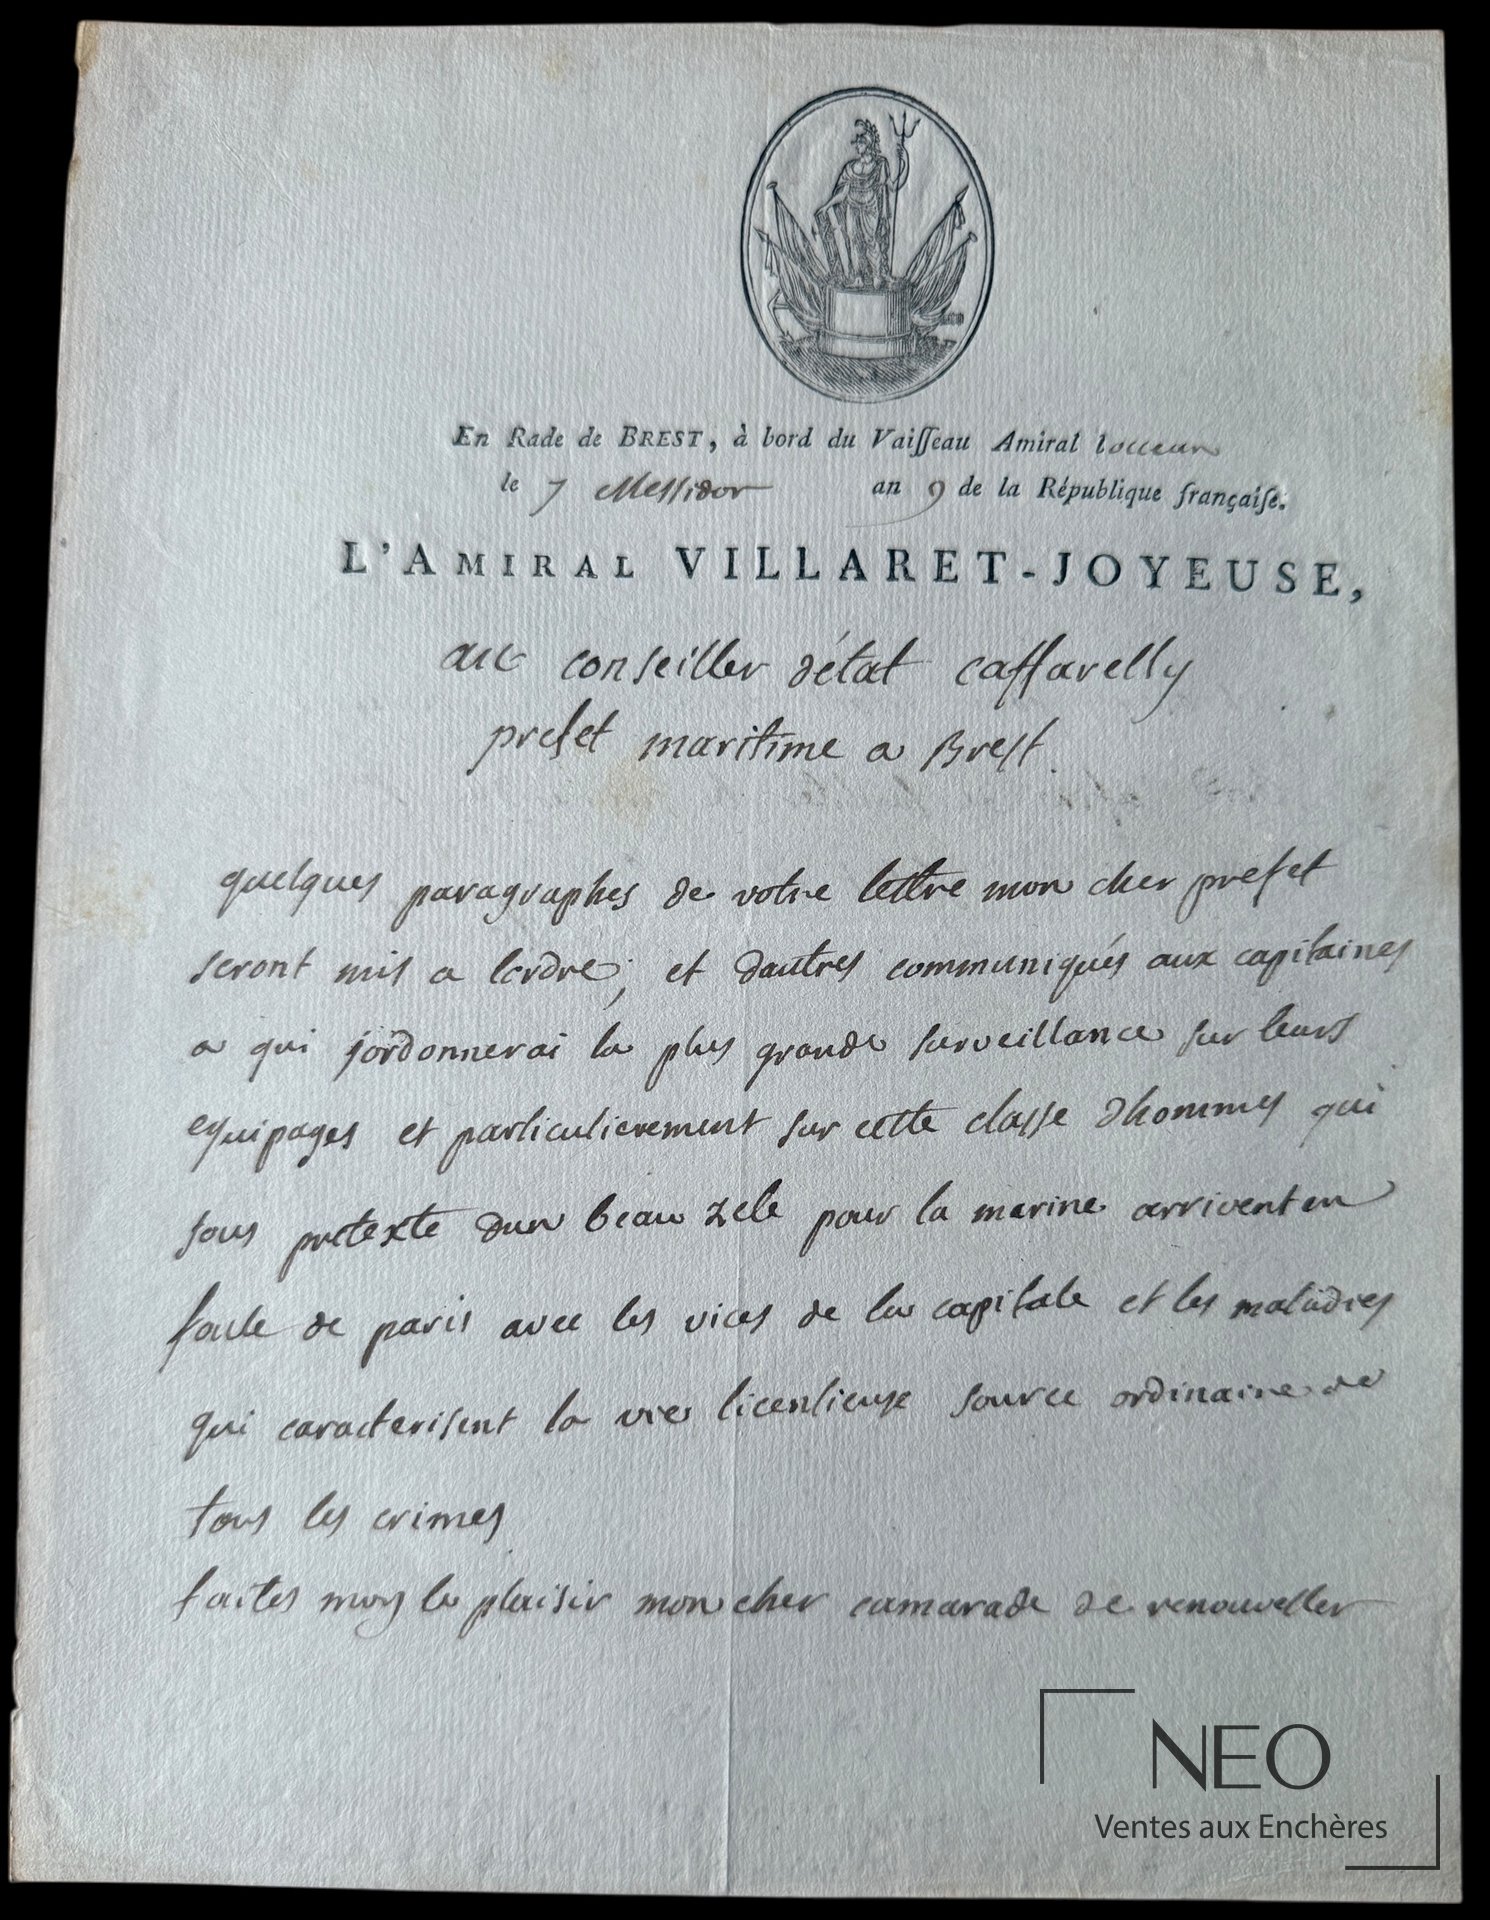 En Rade de BREST, à bord du Vaiſſeau Amiral locean
le 7 Messidor an 9 de la République françaiſe.
L'AMIRAL VILLARET-JOYEUSE,
au conseiller détat caffarelly
prefet maritime a Brest.
quelques paragraphes de votre lettre mon cher prefet
seront mis a lordre, et dautres communiqués aux capitaines
a qui jordonnerai la plus grande surveillance sur leurs
equipages et particulierement sur cette classe dhommes qui
sous pretexte dun beau zele pour la marine arrivent en
foule de paris avec les vices de la capitale et les maladies
qui caracterisent la vie licentieuse source ordinaire de
tous les crimes
faites moy le plaisir mon cher camarade de renouveller
NEO
Ventes aux Enchères